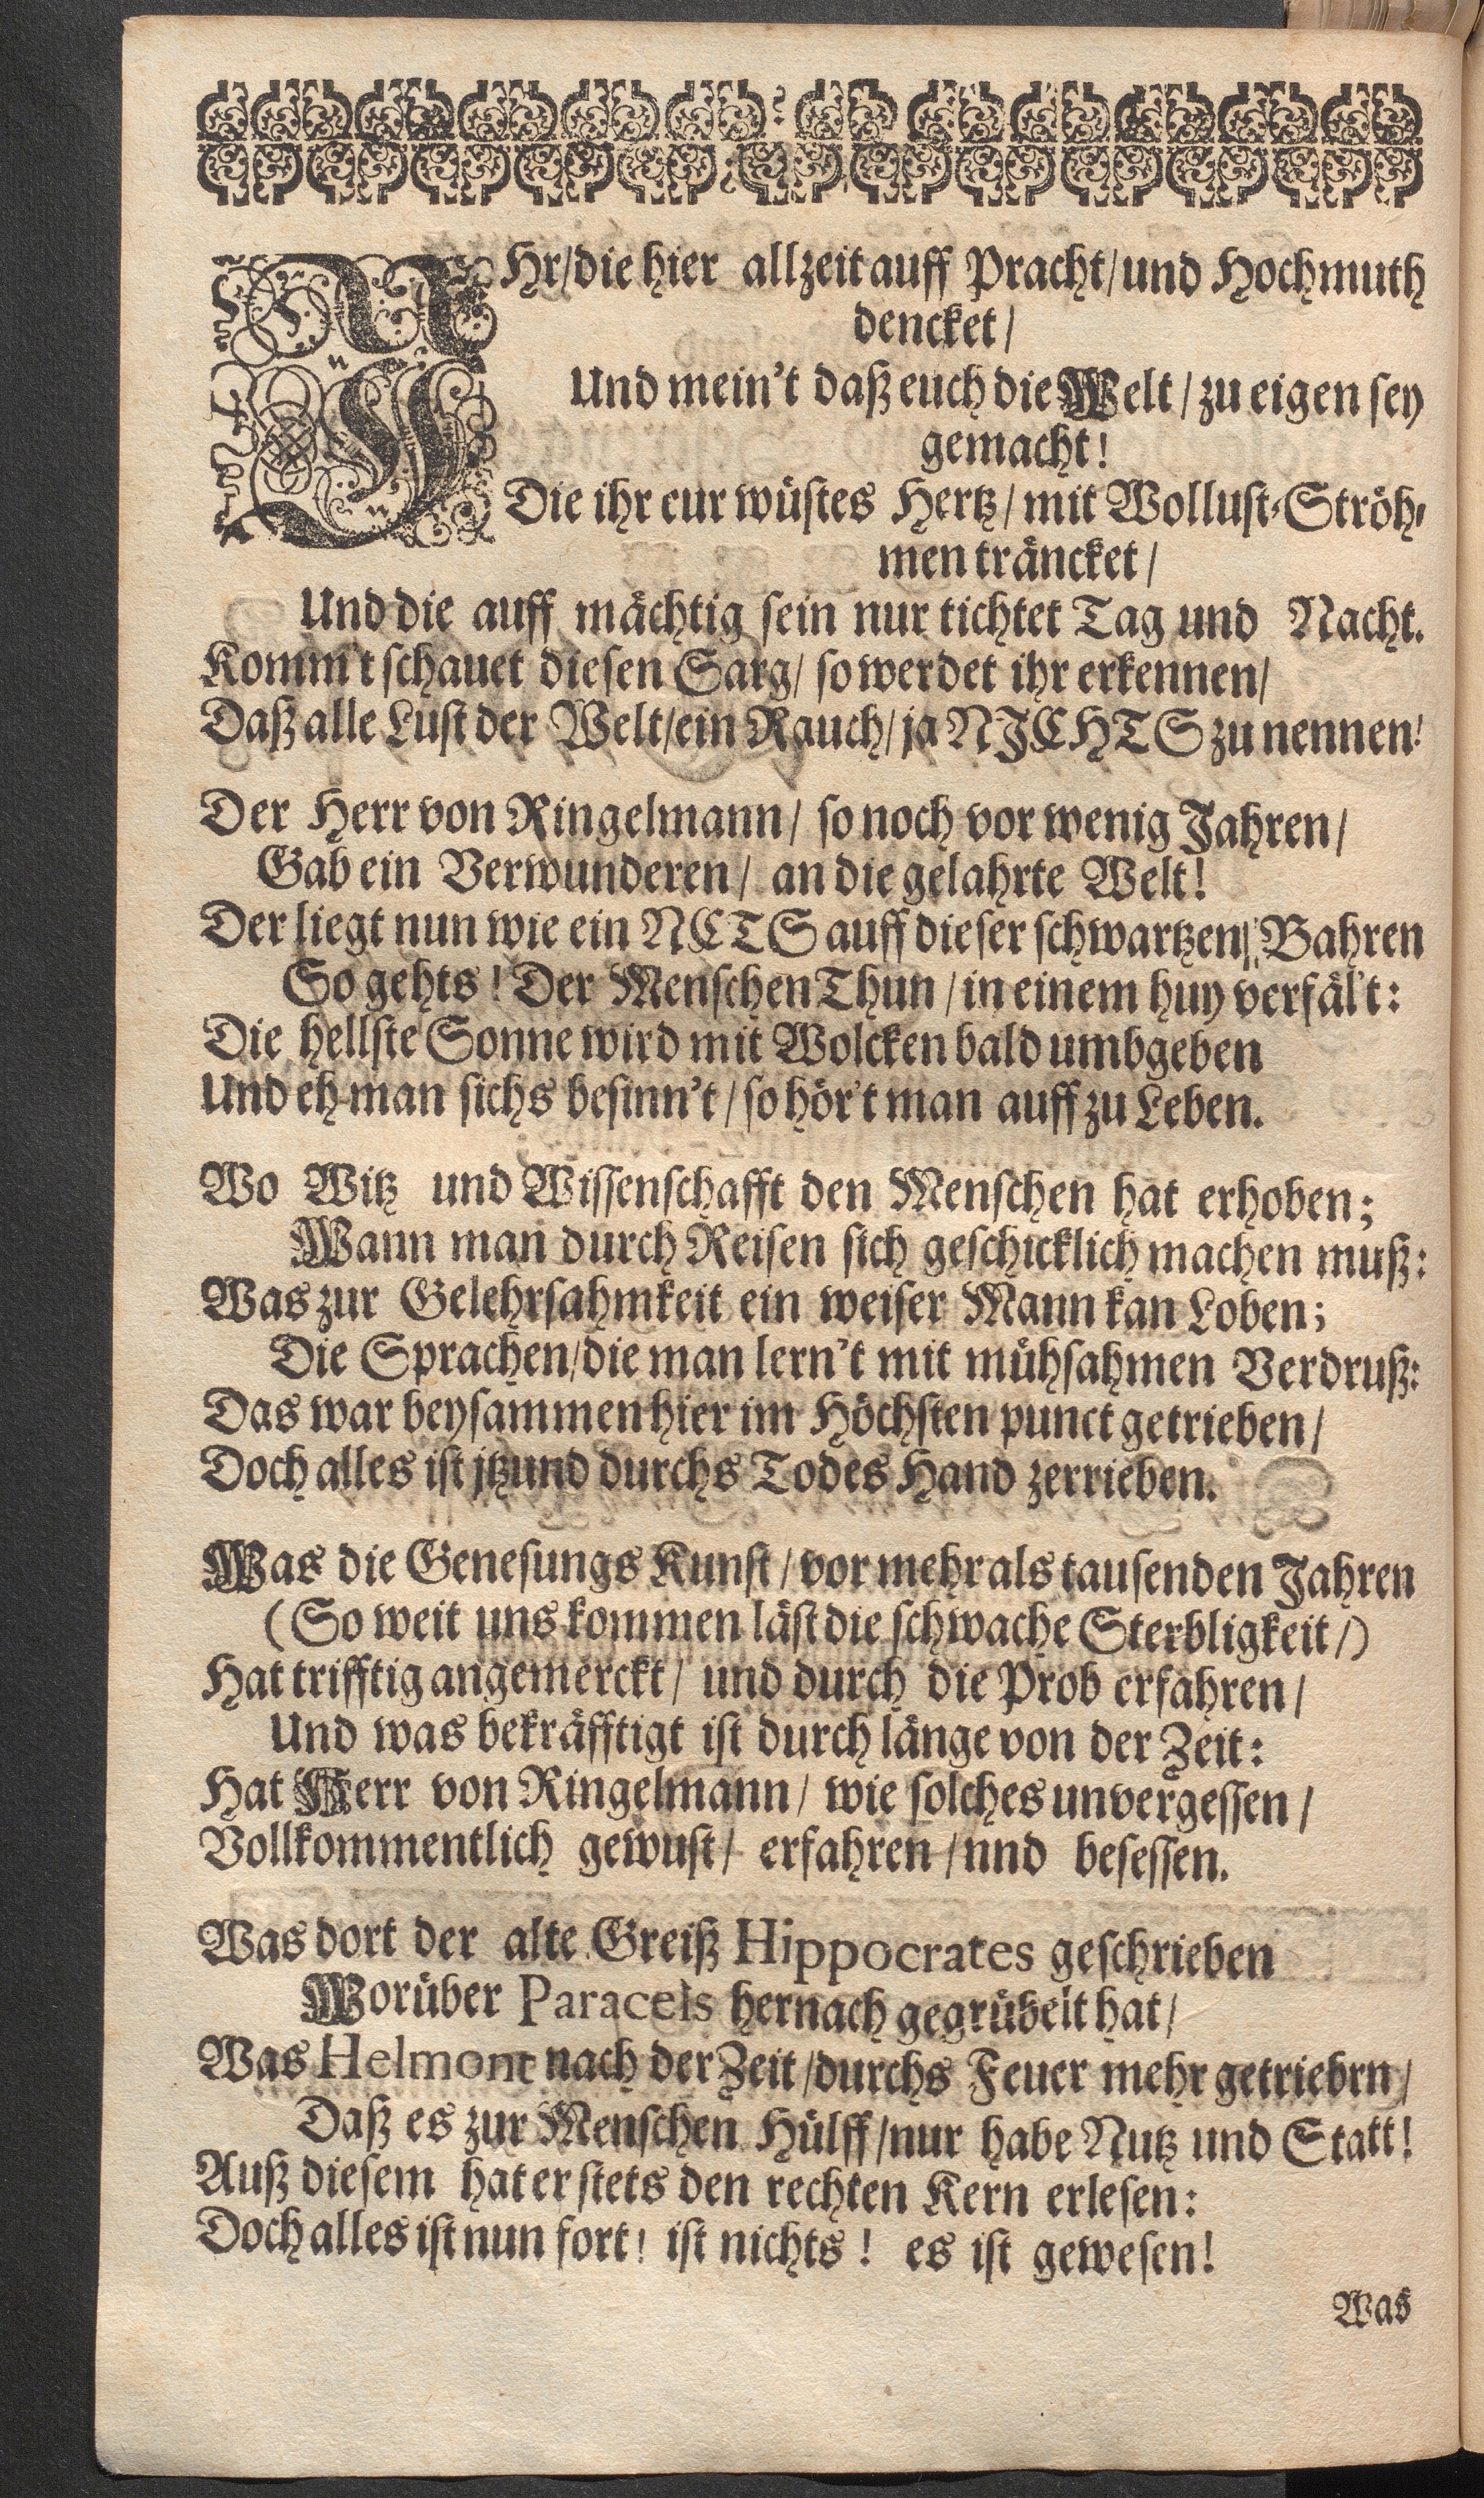 IHr/die hier allzeit auff Pracht/und Hochmuth
dencket/
Und mein't daß euch die Welt/zu eigen sey
gemacht!
Die ihr eur wüstes Hertz/mit Wollust-Ströh-
men träncket/
Und die auff mächtig sein nur tichtet Tag und Nacht.
Komm't schauet diesen Sarg/ so werdet ihr erkennen/
Daß alle Lust der Welt/ein Rauch/ja NJCHTS zu nennen!
Der Herr von Ringelmann/ so noch vor wenig Jahren/
Gab ein Verwunderen/ an die gelahrte Welt!
Der liegt nun wie ein NCTS auff dieser schwartzen Bahren
So gehts! Der Menschen Thun/in einem huy verfäl't:
Die hellste Sonne wird mit Wolcken bald umbgeben
Und eh man sichs besinn't/so hör't man auff zu Leben.
Wo Witz und Wissenschafft den Menschen hat erhoben;
Wann man durch Reisen sich geschicklich machen muß:
Was zur Gelehrsahmkeit ein weiser Mann kan Loben;
Die Sprachen/die man lern't mit mühsahmen Verdruß:
Das war beysammen hier im Höchsten punct getrieben/
Doch alles ist jtzund durchs Todes Hand zerrieben.
Was die Genesungs Kunst/vor mehr als tausenden Jahren
(So weit uns kommen läst die schwache Sterbligkeit/)
Hat trifftig angemerckt/ und durch die Prob erfahren/
Und was bekräfftigt ist durch länge von der Zeit:
Hat Herr von Ringelmann/ wie solches unvergessen/
Vollkommentlich gewust/ erfahren/nnd besessen.
Was dort der alte Greiß Hippocrates geschrieben
Worüber Paracels hernach gegrübelt hat/
Was Helmont nach der Zeit/durchs Feuer mehr getriebrn/
Daß es zur Menschen Hülff/nur habe Nutz und Statt!
Auß diesem hat er stets den rechten Kern erlesen:
Doch alles ist nun fort! ist nichts! es ist gewesen!
Was